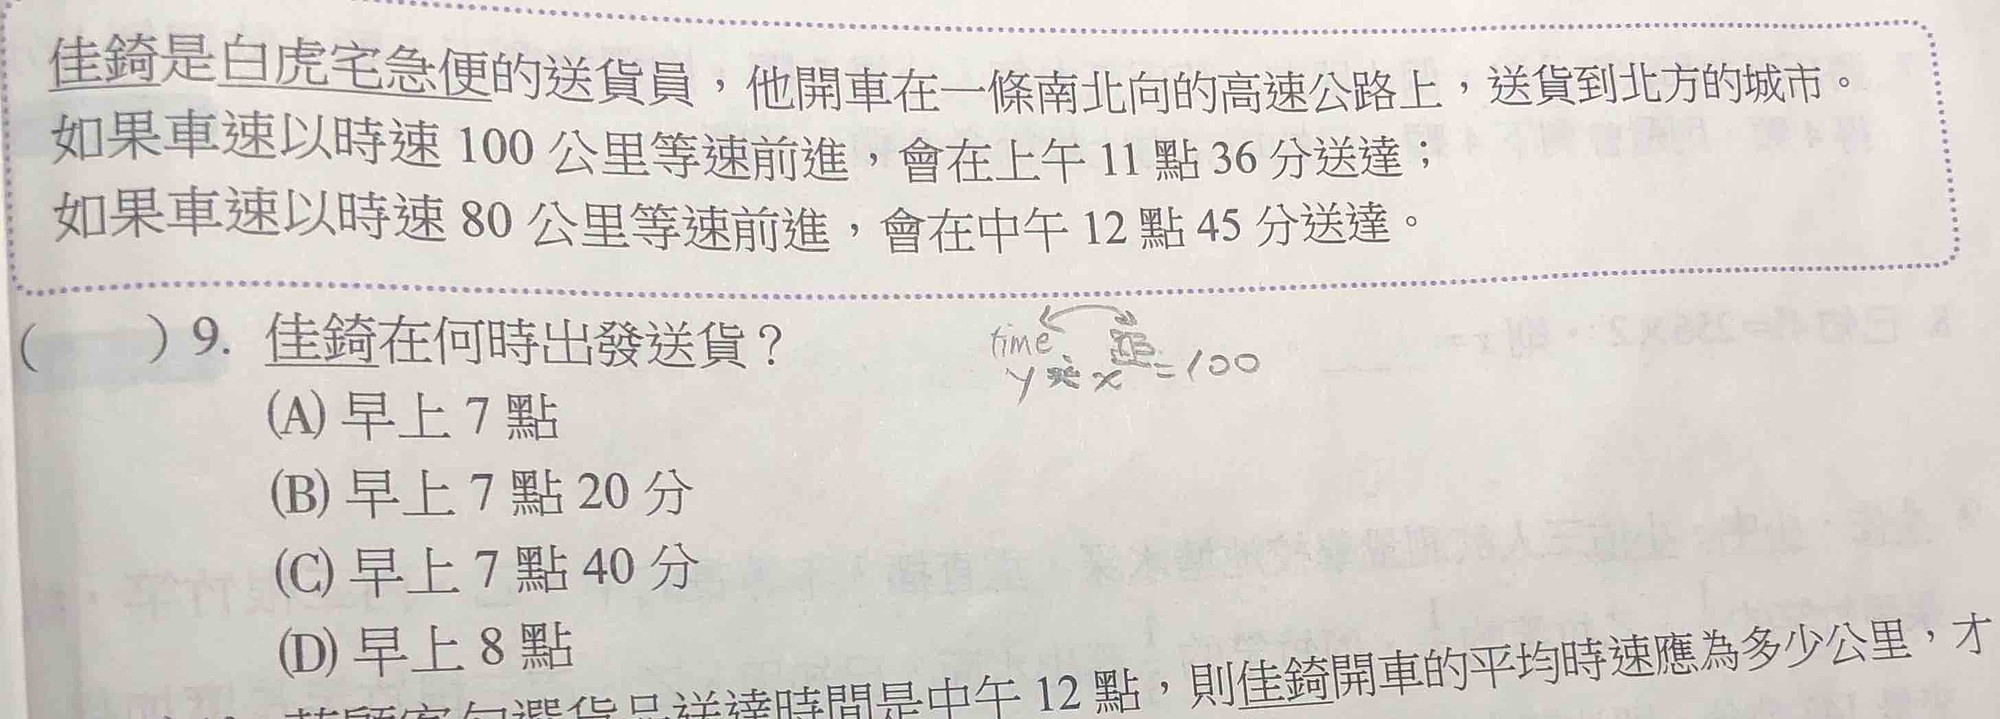 佳錡是白虎宅急便的送貨員，他開車在一條南北向的高速公路上，送貨到北方的城市。
如果車速以時速 100 公里等速前進，會在上午 11 點 36 分送達；
如果車速以時速 80 公里等速前進，會在中午 12 點 45 分送達。
(　　) 9. 佳錡在何時出發送貨？
time 距
y x = 100
(A) 早上 7 點
(B) 早上 7 點 20 分
(C) 早上 7 點 40 分
(D) 早上 8 點
貨品送達時間是中午 12 點，則佳錡開車的平均時速應為多少公里，才